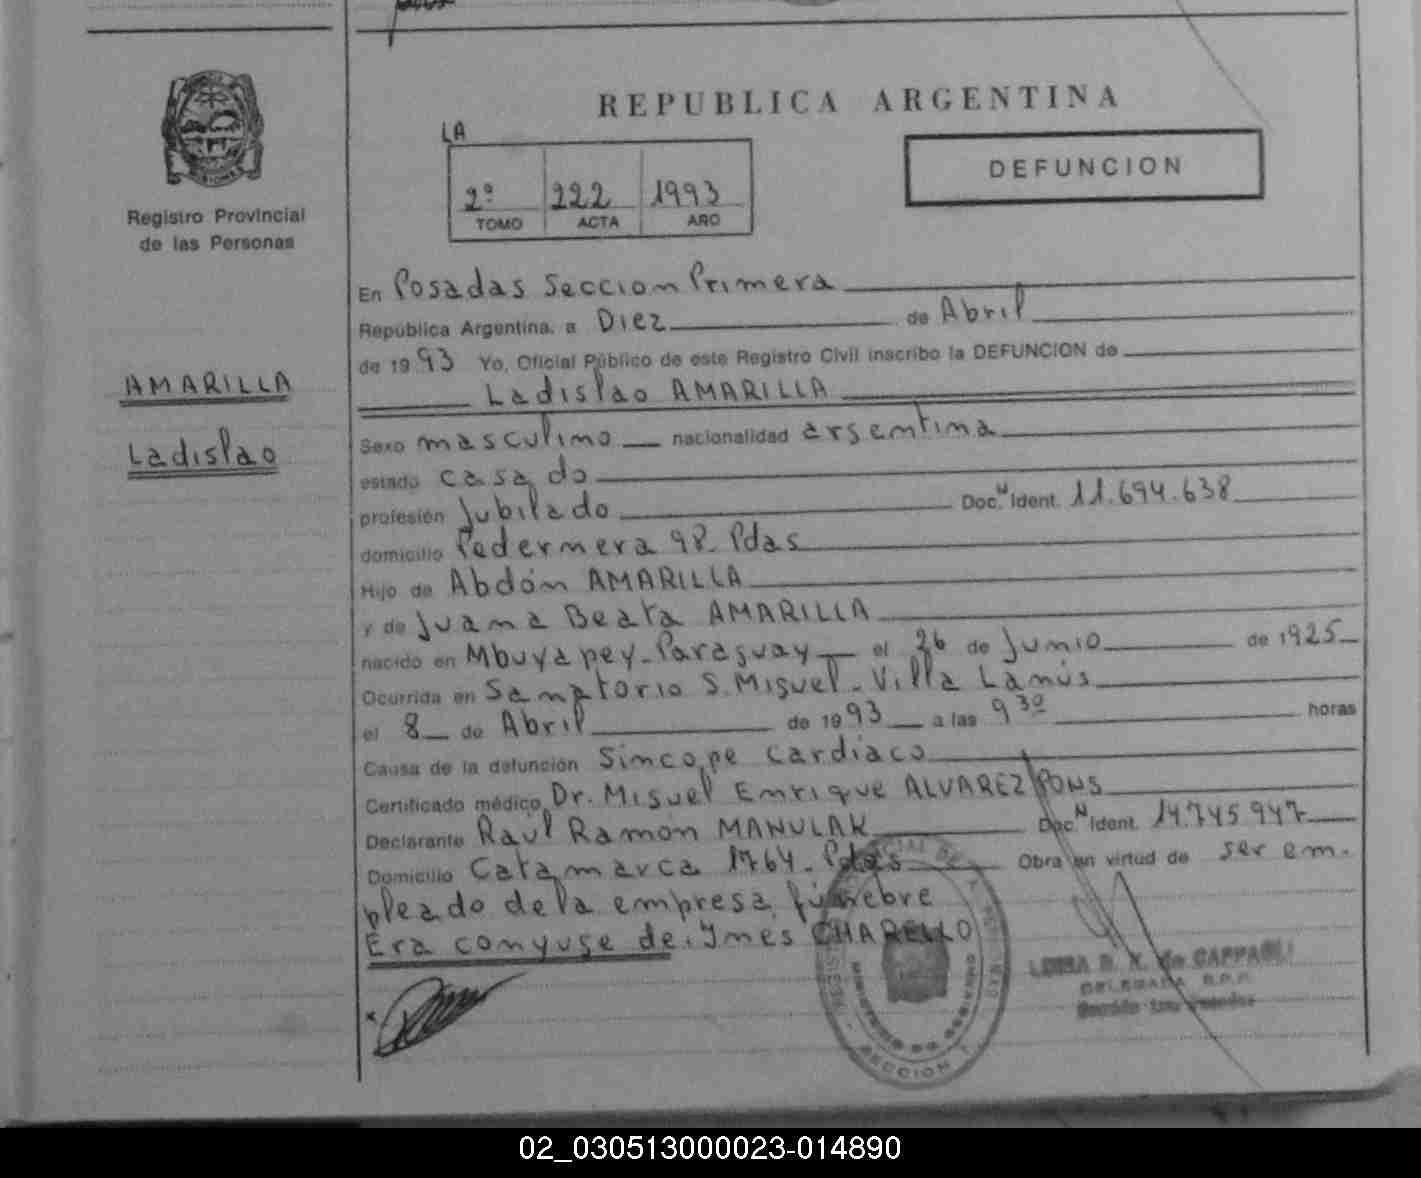 REPUBLICA ARGENTINA
LA
2º 222 1993
TOMO ACTA AÑO
DEFUNCION
Registro Provincial
de las Personas
AMARILLA
Ladislao
En Posadas Seccion Primera
República Argentina, a Diez de Abril
de 1993 Yo, Oficial Público de este Registro Civil inscribo la DEFUNCION de
Ladislao AMARILLA
Sexo masculino nacionalidad argentina
estado casado
profesión Jubilado Doc.N Ident. 11.694.638
domicilio Pedernera 98. Pdas
Hijo de Abdón AMARILLA
y de Juana Beata AMARILLA
nacido en Mbuyapey-Paraguay el 26 de Junio de 1925
Ocurrida en Sanatorio S. Miguel. Villa Lanús
el 8 de Abril de 1993 a las 9 30 horas
Causa de la defunción Sincope cardíaco
Certificado médico Dr. Miguel Enrique ALVAREZ PONS
Declarante Raúl Ramón MANULAK Doc.N Ident. 14.745947
Domicilio Catamarca 1764. Pdas Obra en virtud de ser em-
pleado de la empresa fúnebre
Era conyuge de: Ynes CHARELLO
DELEGADA R.P.P.
MINISTERIO DE GOBIERNO
SECCION 1
02_030513000023-014890